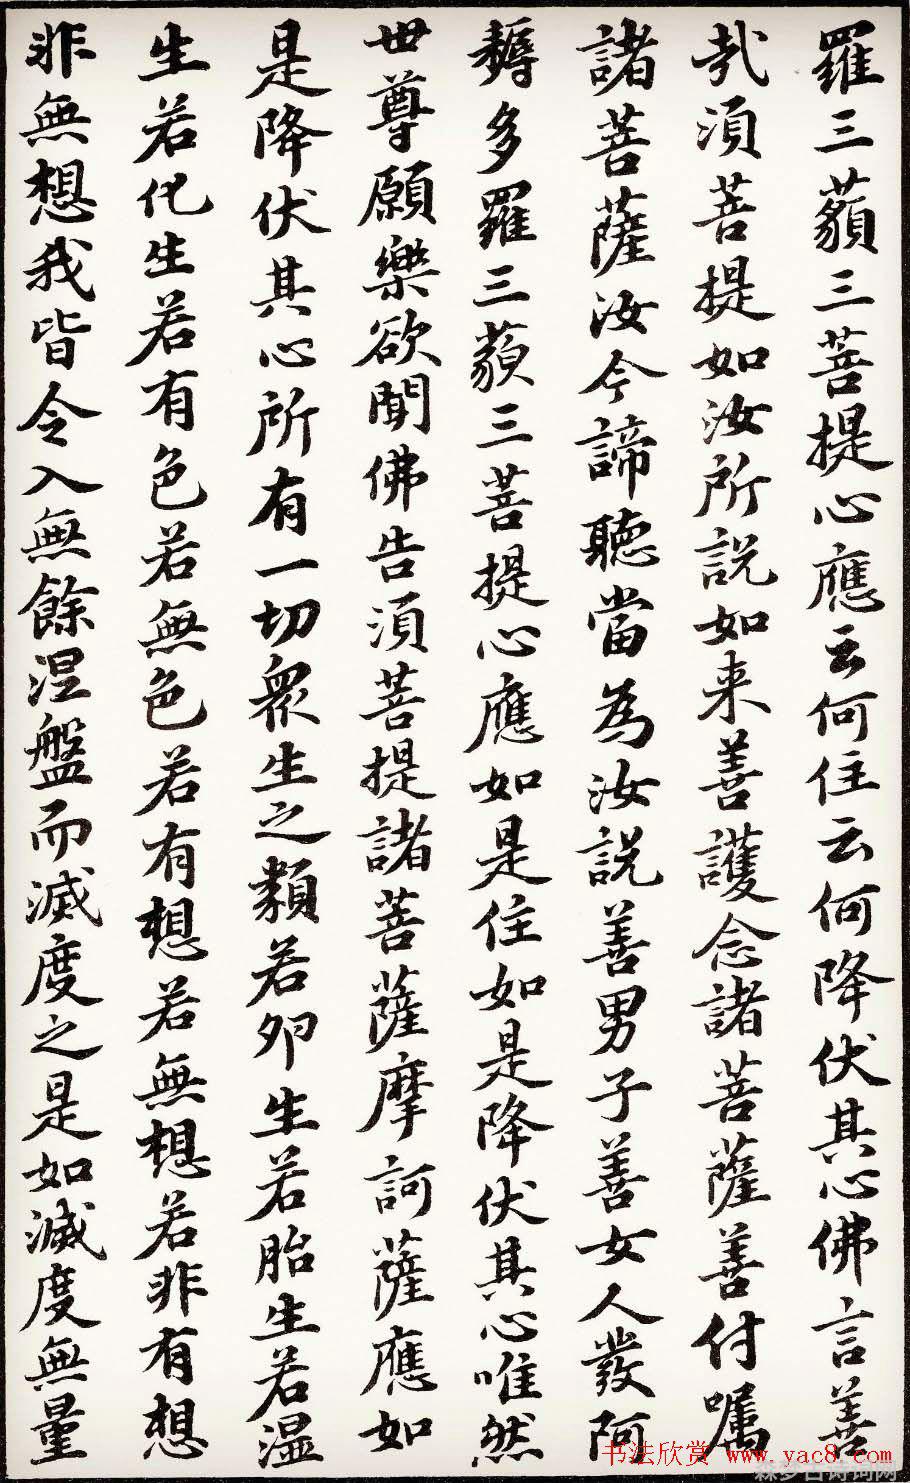 羅三藐三菩提心應云何住云何降伏其心佛言善
哉須菩提如汝所說如来善護念諸菩薩善付嘱
諸菩薩汝今諦聽當為汝說善男子善女人發阿
耨多羅三藐三菩提心應如是住如是降伏其心唯然
世尊願樂欲聞佛告須菩提諸菩薩摩訶薩應如
是降伏其心所有一切衆生之類若卵生若胎生若湿
生若化生若有色若無色若有想若無想若非有想
非無想我皆令入無餘涅盤而滅度之是如滅度無量
书法欣赏 www.yac8.com